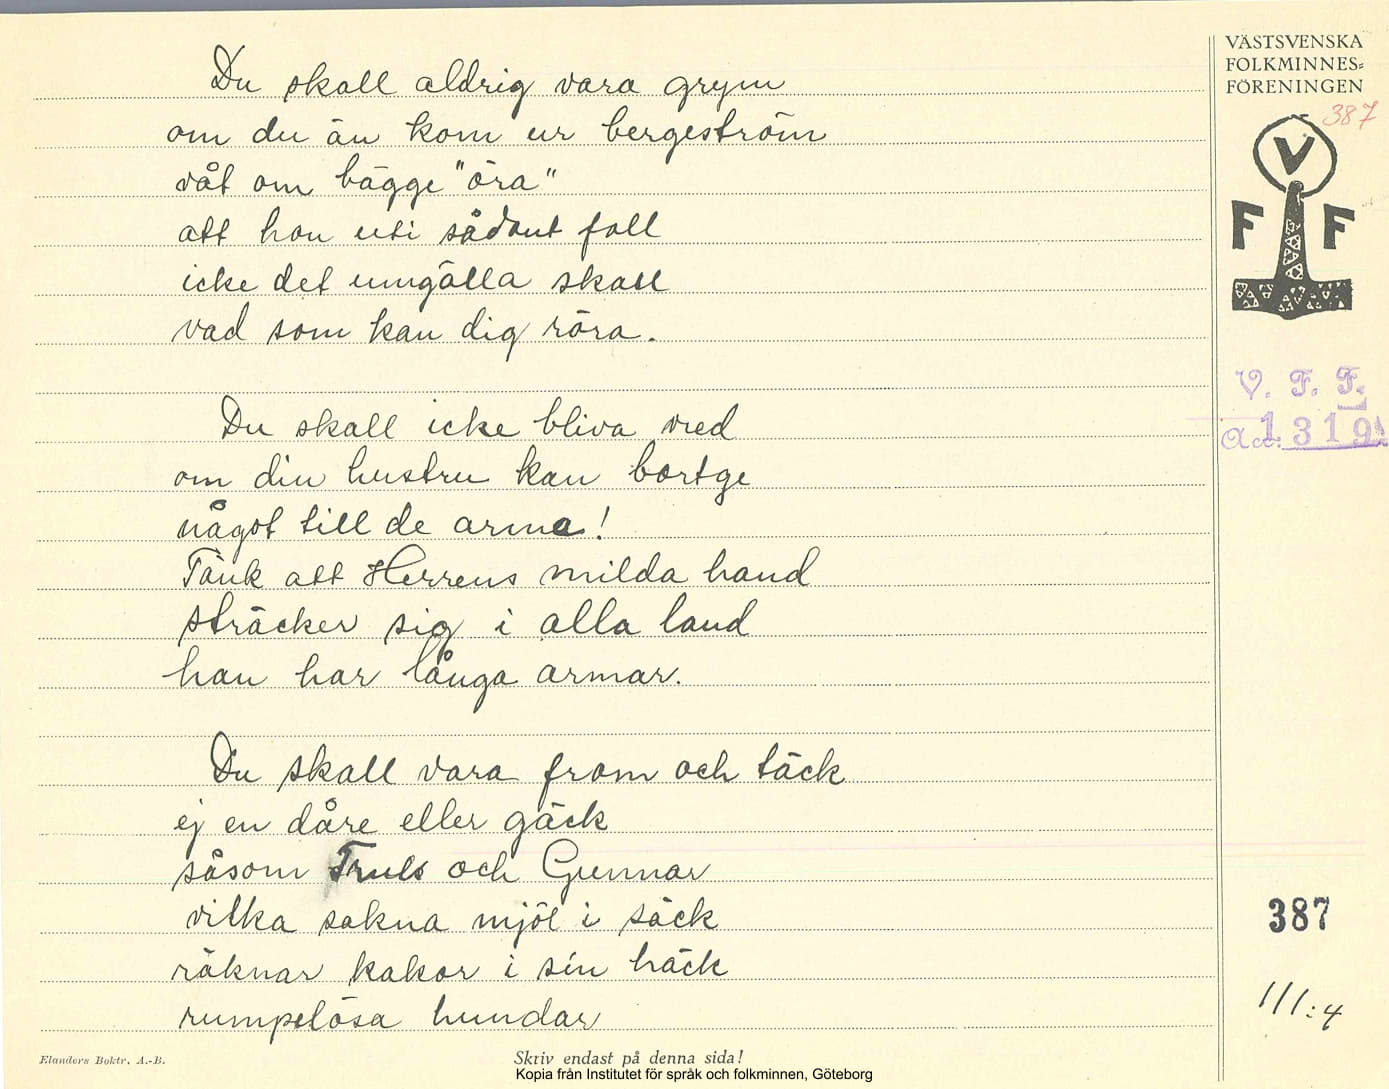 Du skall aldrig vara grym
om du än kom ur bergeström
våt om bägge "öra"
att hon uti sådant fall
icke det umgälla skall
vad som kan dig röra.
Du skall icke bliva vred
om din hustru kan bortge
något till de arma!
Tänk att Herrens milda hand
sträcker sig i alla land
han har långa armar.
Du skall vara from och täck
ej en dåre eller gäck
såsom Truls och Gunnar
vilka sakna mjöl i säck
räknar kakor i sin häck
rumpelösa hundar
Elanders Boktr. A.-B.
Skriv endast på denna sida!
Kopia från Institutet för språk och folkminnen, Göteborg
VÄSTSVENSKA
FOLKMINNES-
FÖRENINGEN
387
V
F F
V. F. F.
Acc. 1319
387
111:4